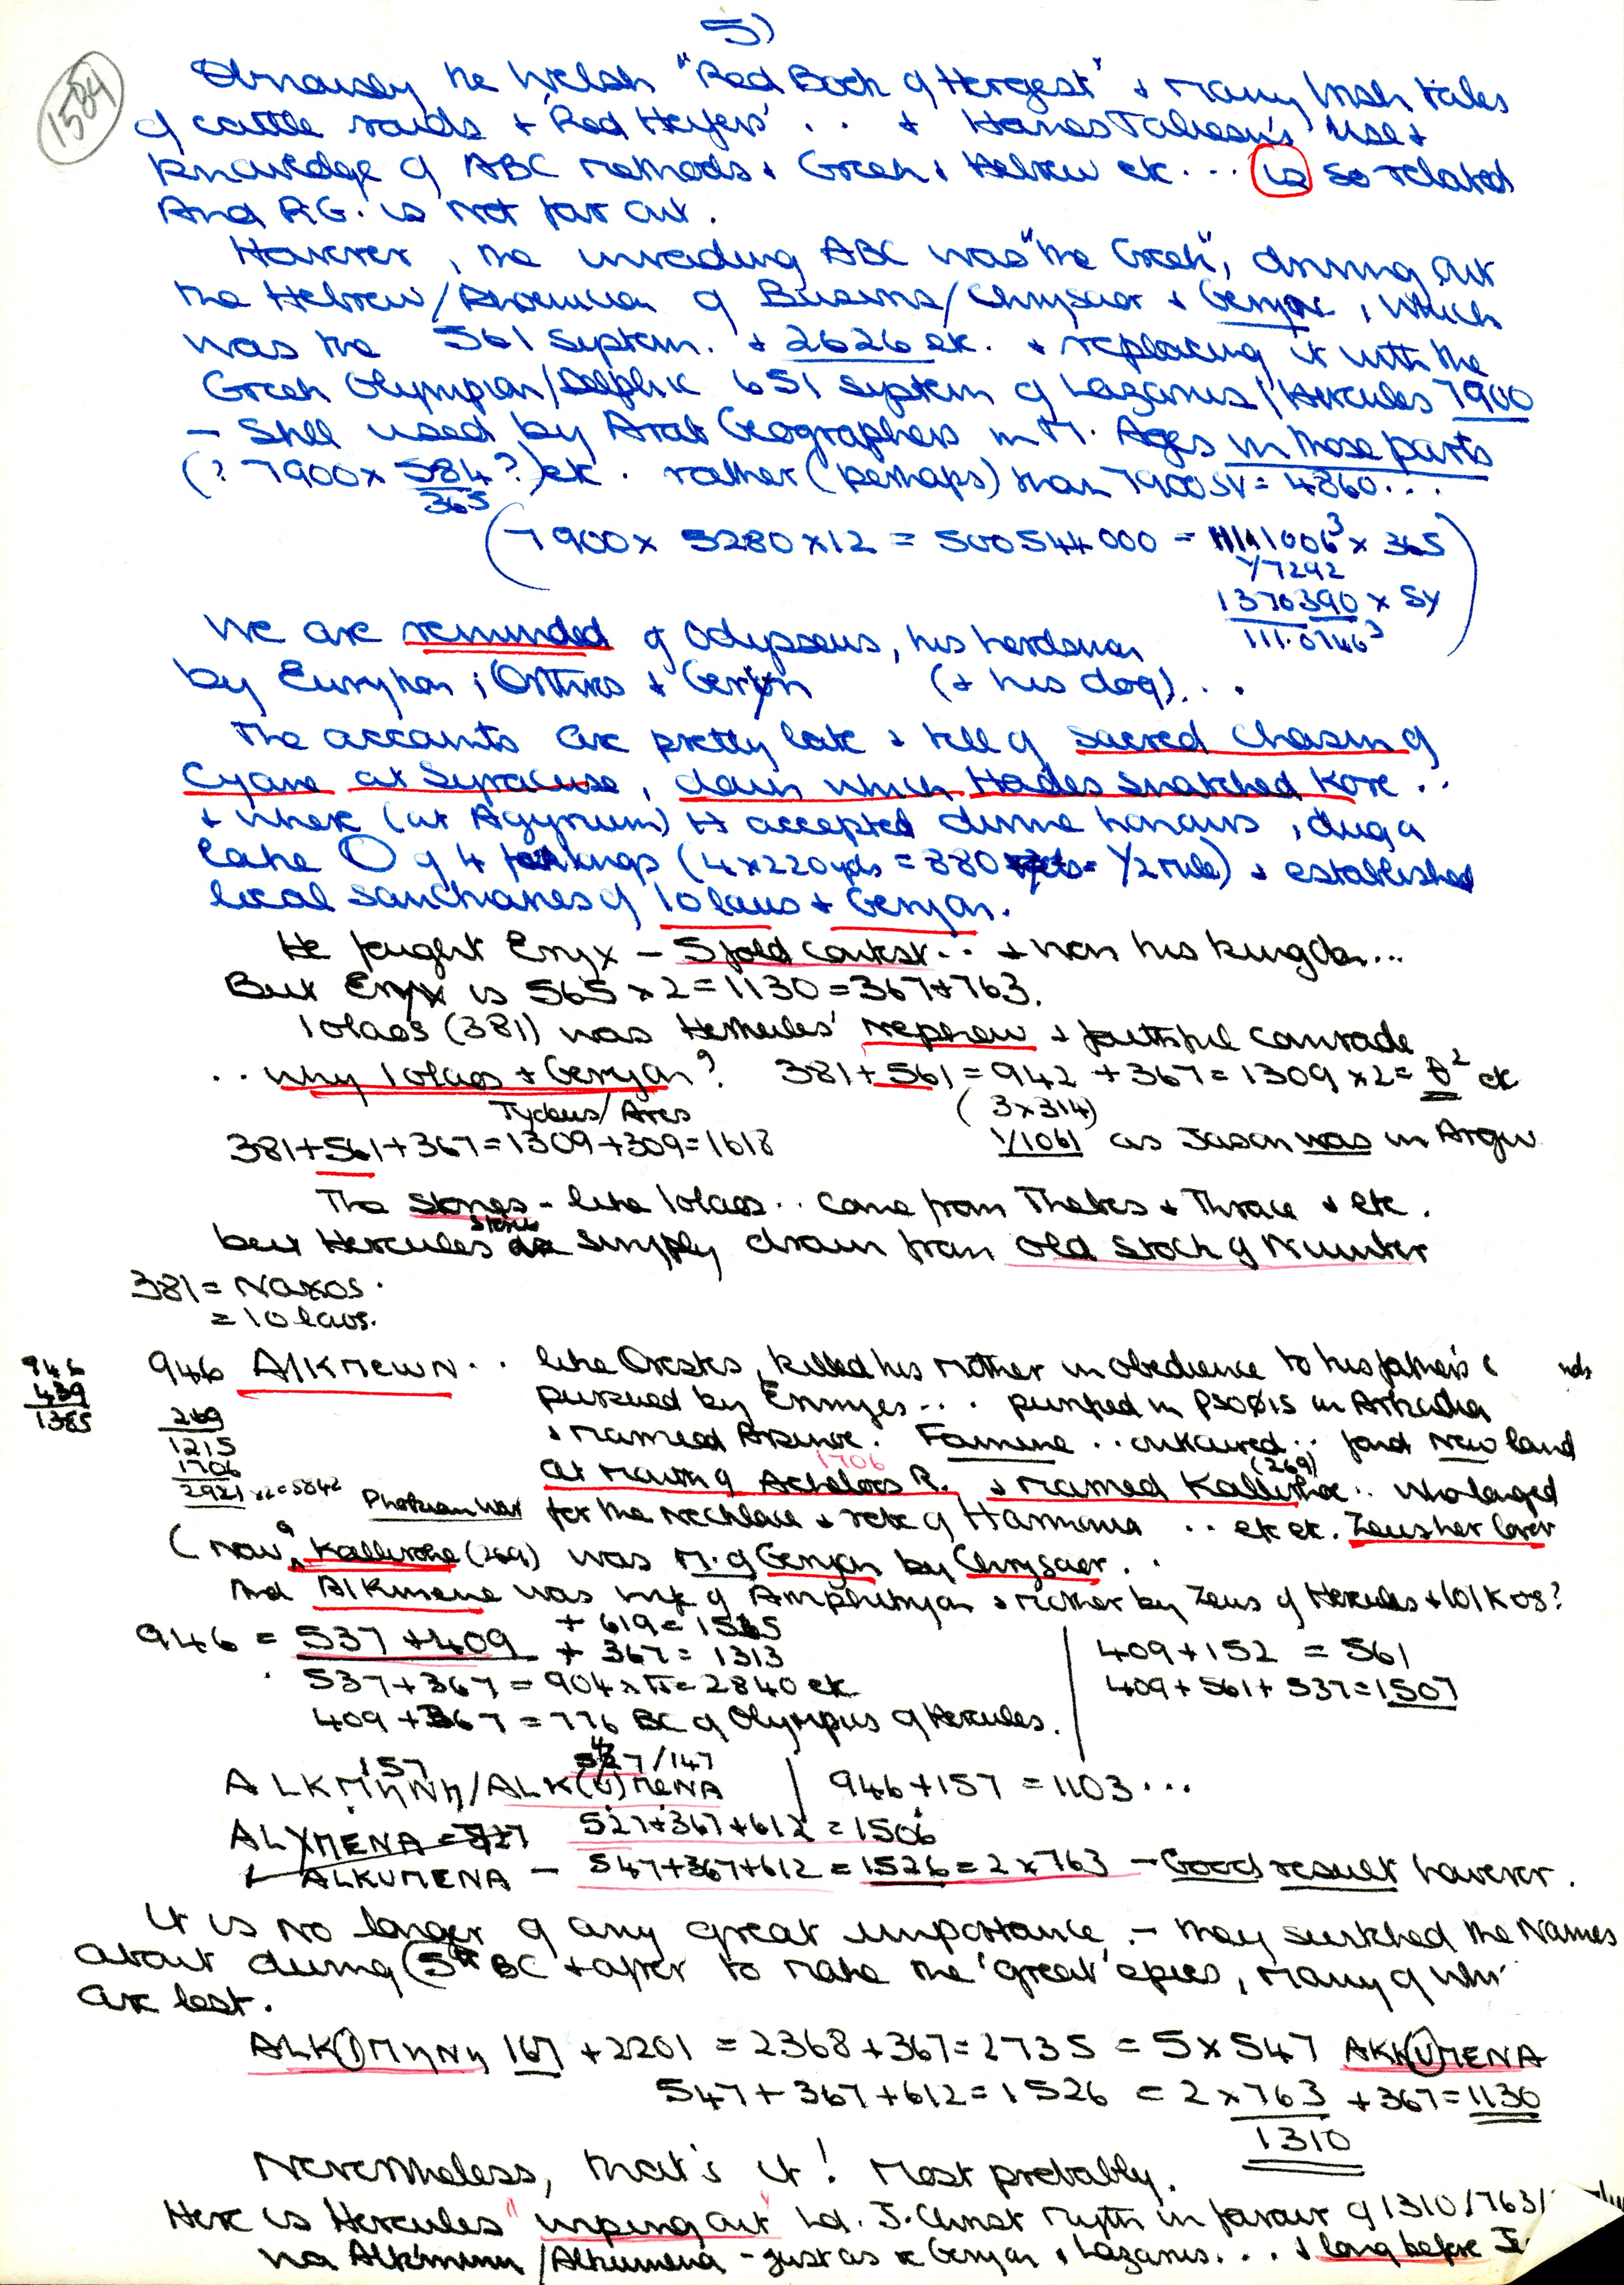 5)
1584
Obviously the Welsh "Red Book of Hergest" + many Irish tales
of cattle raids + 'Red Heifers' . . + Hanes Taliesin's use +
knowledge of ABC methods + Greek + Hebrew etc ... is so related
And R.G. is not far out.
However, the invading ABC was "the Greek", driving out
the Hebrew/Phoenician of Busiris/Chrysaor + Geryon, which
was the 561 system. + 2626 etc. + replacing it with the
Greek Olympian/Delphic 651 system of Lazarus/Hercules 7900
- Still used by Arab Geographers in M. Ages in those parts
(? 7900 x 584/365 ?) etc. rather (perhaps) than 7900 SV = 4860...
(7900 x 5280 x 12 = 500544000 = 111.1006³ x 365
1/7292
1370390 x SY
111.0746³)
We are reminded of Odysseus, his herdsman
by Eurytion; Orthros + Geryon (+ his dog)...
The accounts are pretty late + tell of sacred chasm of
Cyane at Syracuse, down which Hades snatched Kore..
+ where (at Agyrium) H accepted divine honours, dug a
lake O of 4 furlongs (4 x 220 yds = 880 = 1/2 mile) + established
local sanctuaries of Iolaus + Geryon.
He fought Eryx - 5 fold contest.. + won his kingdom...
But Eryx is 565 x 2 = 1130 = 367 + 763.
Iolaos (381) was Herkules' nephew + faithful comrade
.. why Iolaos + Geryon? 381 + 561 = 942 + 367 = 1309 x 2 = θ² etc
Tydeus/Ares (3 x 314)
381 + 561 + 367 = 1309 + 309 = 1618 1/1061 as Jason was in Argw
The stones - like Iolaos .. come from Thebes + Thrace + etc.
but Hercules stories simply drawn from old stock of Number
381 = Naxos.
= Iolaos.
946
439
1385
946 AlKMEWN .. like Orestes, killed his mother in obedience to his father's
269
1215
1706
2921 x 2 = 5842
pursued by Erinyes ... purified in PSOφIS in Arkadia
+ married Arsinoe. Famine .. found new land
1706 (269)
at mouth of Achelous R. + married Kallirhoe .. who longed
for the necklace + robe of Harmonia .. etc etc. Zeus her lover
(Now, Kallirhoe (269) was M. of Geryon by Chrysaor.
And Alkmene was wife of Amphitryon + mother by Zeus of Hercules + Iolkos?
946 = 537 + 409 + 619 = 1565
+ 367 = 1313
537 + 367 = 904 x π = 2840 etc
409 + 367 = 776 BC of Olympus of Hercules.
409 + 152 = 561
409 + 561 + 537 = 1507
157 527/147
ALKMηNη/ALK(U)MENA
946 + 157 = 1103...
ALYMENA = 527 527 + 367 + 612 = 1506
ALKUMENA - 547 + 367 + 612 = 1526 = 2 x 763 - Good result however.
It is no longer of any great importance - they switched the Names
about during (5th BC + after to make the 'great' epics, many of
are lost.
ALK(I)MηNη 167 + 2201 = 2368 + 367 = 2735 = 5 x 547 AKK(U)MENA
547 + 367 + 612 = 1526 = 2 x 763 + 367 = 1130
1310
Nevertheless, that's it! Most probably.
Here is Hercules "wiping out" Ld. J. Christ Myth in favour of 1310/763/
Alkimene/Alkumena - just as Geryon + Lazarus... + long before